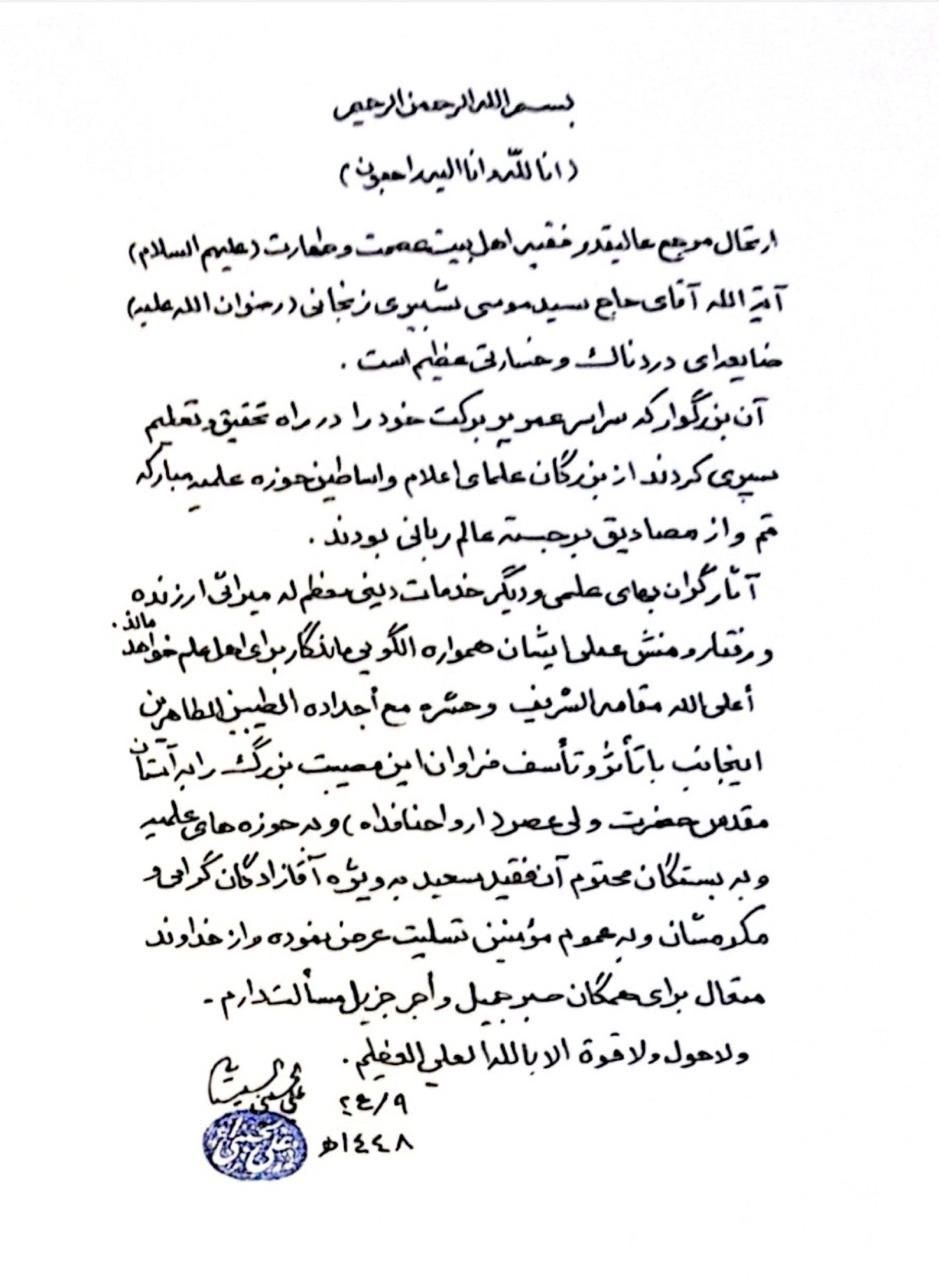 بسم الله الرحمن الرحیم
(انا لله وانا الیه راجعون)
ارتحال مرجع عالیقدر فقیه اهل بیت عصمت و طهارت (علیهم السلام)
آیة الله آقای حاج سید موسی شبیری زنجانی (رضوان الله علیه)
ضایعه‌ای دردناک و خسارتی عظیم است .
آن بزرگوار که سراسر عمر پر برکت خود را در راه تحقیق و تعلیم
سپری کردند از بزرگان علمای اعلام و اساطین حوزه علمیه مبارکه
قم و از مصادیق برجسته عالم ربانی بودند .
آثار گران بهای علمی و دیگر خدمات دینی معظم له میراثی ارزنده
و رفتار و منش عملی ایشان همواره الگویی ماندگار برای اهل علم خواهد ماند .
أعلی الله مقامه الشریف وحشره مع أجداده الطیبین الطاهرین
اینجانب با تأثر و تأسف فراوان این مصیبت بزرگ را به آستان
مقدس حضرت ولی عصر (ارواحنا فداه) و به حوزه های علمیه
و به بستگان محترم آن فقید سعید به ویژه آقازادگان گرامی و
مکرمشان و به عموم مؤمنین تسلیت عرض نموده و از خداوند
متعال برای همگان صبر جمیل و أجر جزیل مسألت دارم -
ولا حول ولا قوة الا بالله العلي العظیم .
علي الحسيني السيستاني
٢٤/٩
١٤٤٨هـ